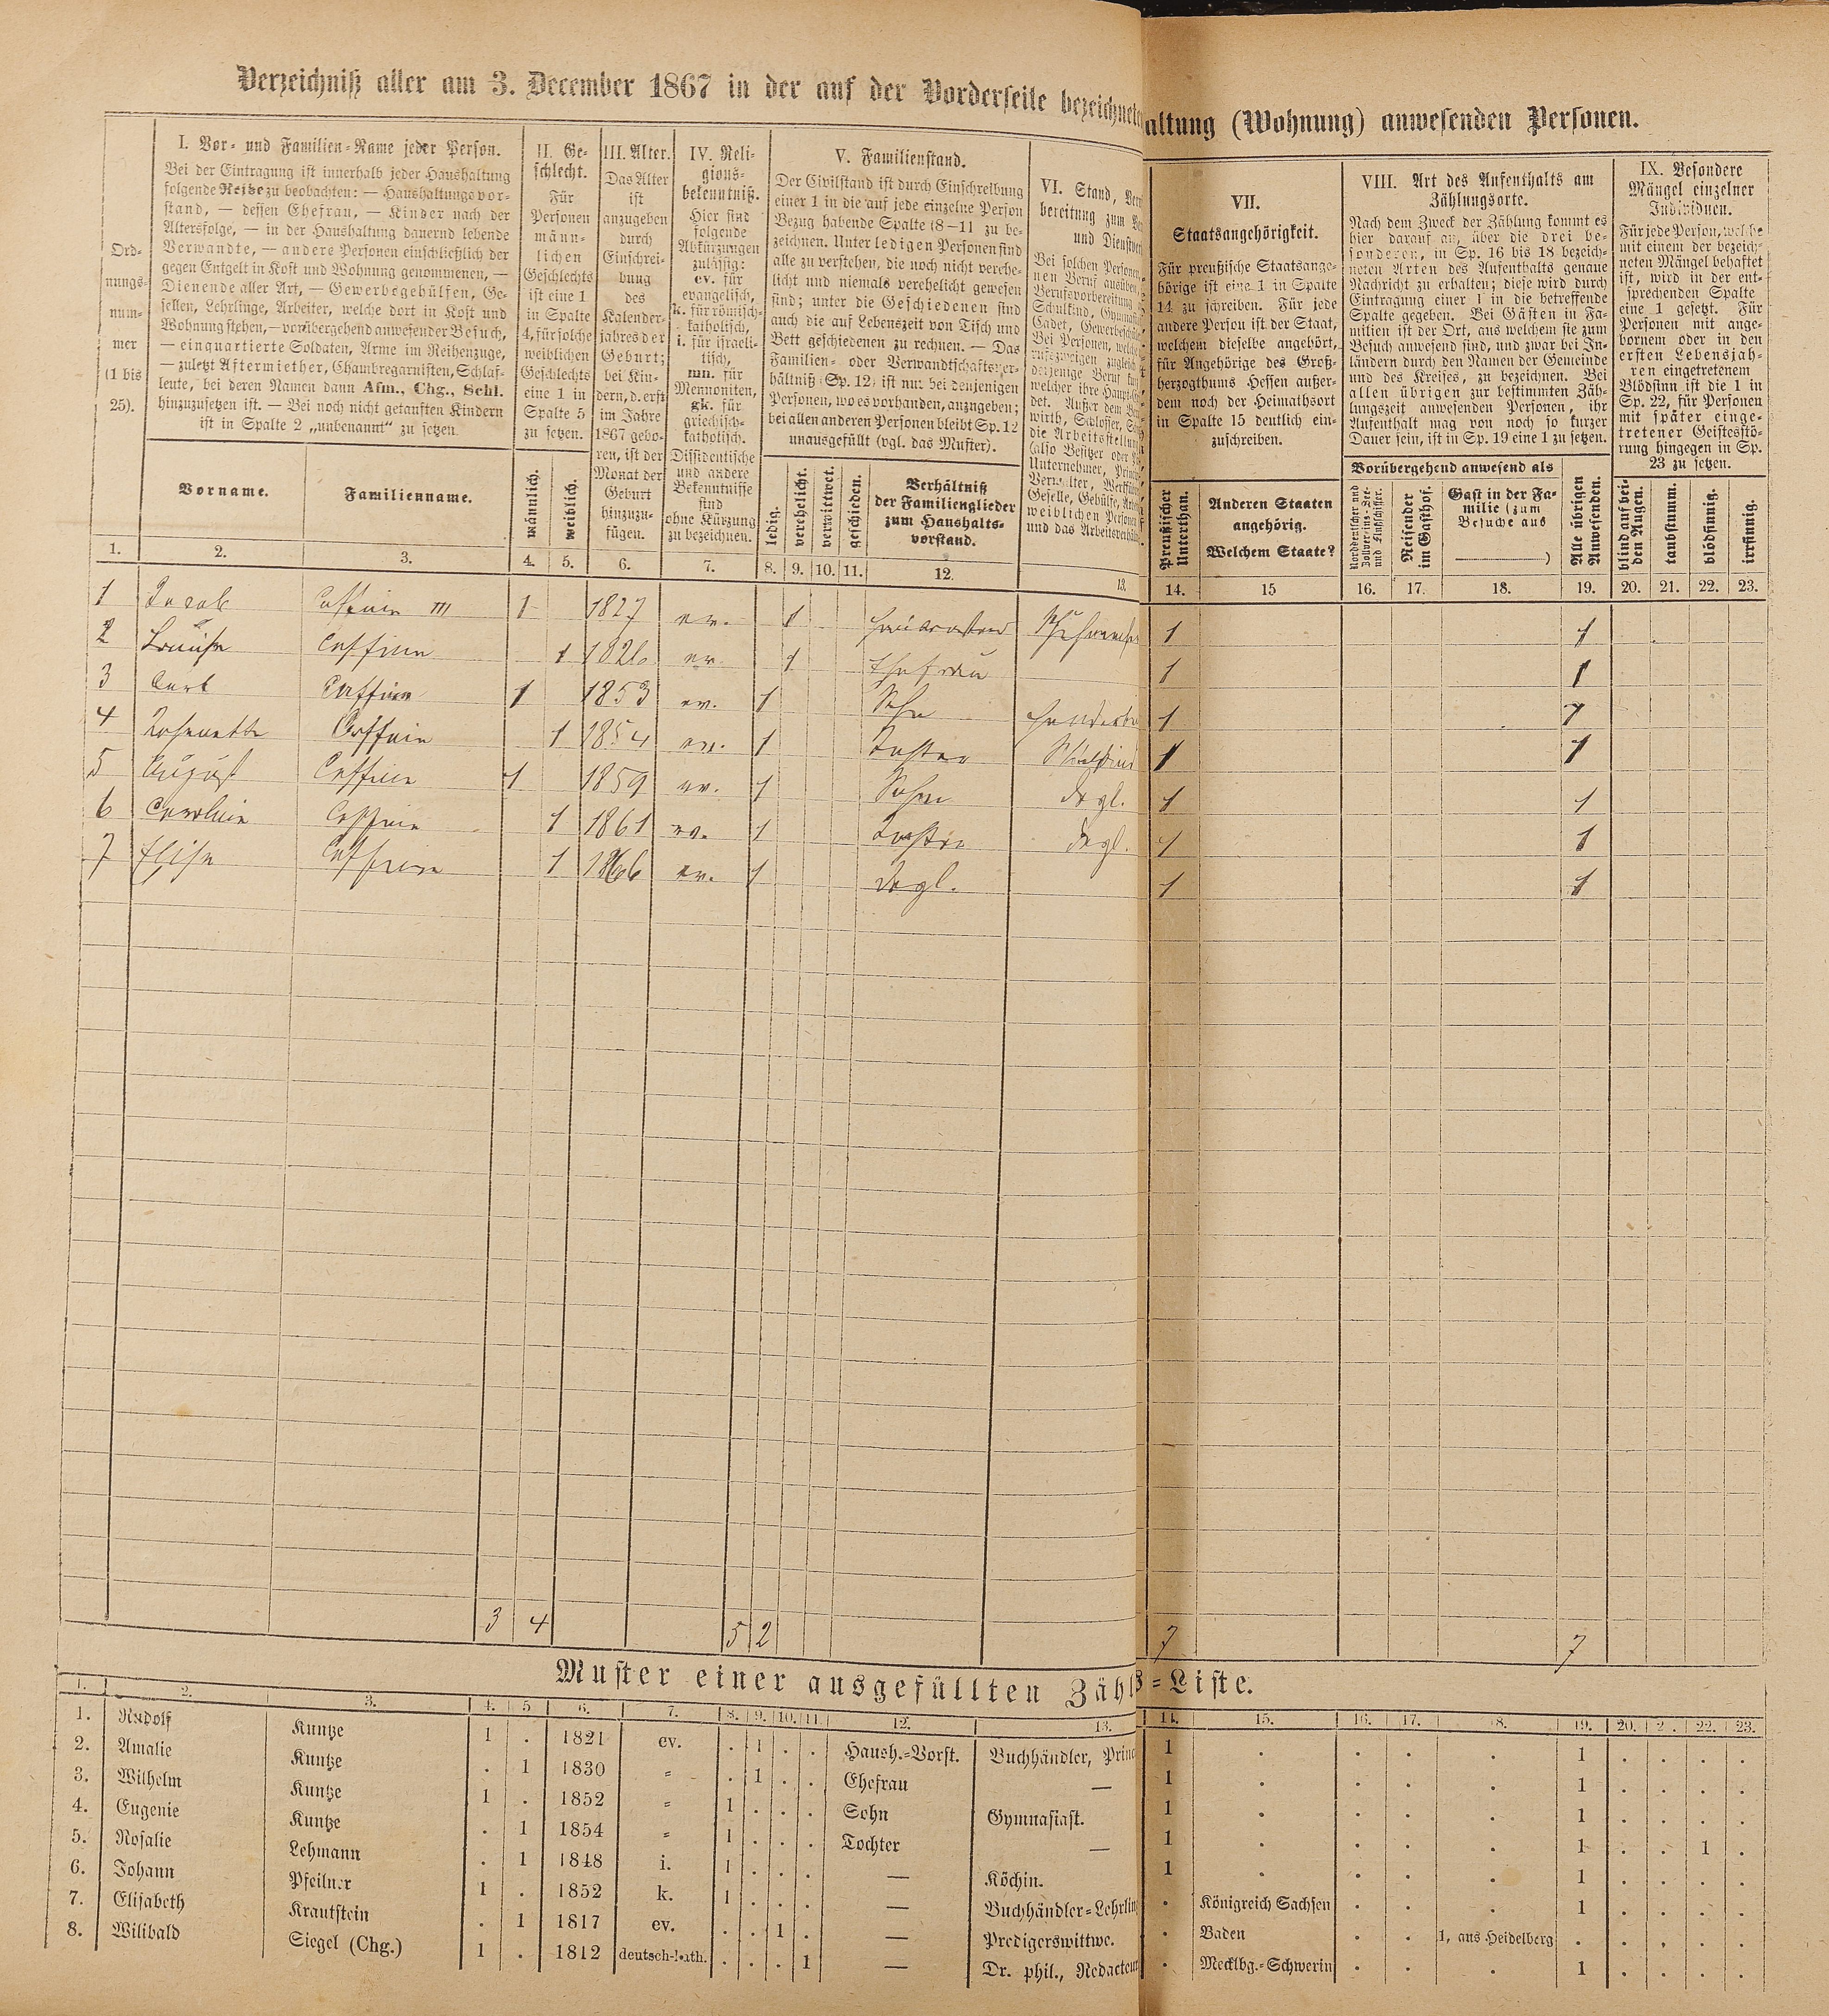 Verzeichniß aller am 3. December 1867 in der auf der Vorderseite bezeichnete
altung (Wohnung) anwesenden Personen.
Ord-
nungs-
num-
mer
(1 bis
25).
I. Vor- und Familien-Name jeder Person.
Bei der Eintragung ist innerhalb jeder Haushaltung
folgende Reihe zu beobachten: — Haushaltungsvor-
stand, — dessen Ehefrau, — Kinder nach der
Altersfolge, — in der Haushaltung dauernd lebende
Verwandte, — andere Personen einschließlich der
gegen Entgelt in Kost und Wohnung genommenen, —
Dienende aller Art, — Gewerbsgehülfen, Ge-
sellen, Lehrlinge, Arbeiter, welche dort in Kost und
Wohnung stehen, — vorübergehend anwesender Besuch,
— einquartierte Soldaten, Arme im Reihenzuge,
— zuletzt Aftermiether, Chambregarnisten, Schlaf-
leute, bei deren Namen dann Afm., Chg., Schl.
hinzuzusetzen ist. — Bei noch nicht getauften Kindern
ist in Spalte 2 „unbenannt" zu setzen.
Vorname.
Familienname.
II. Ge-
schlecht.
Für
Personen
männ-
lichen
Geschlechts
ist eine 1
in Spalte
4, für solche
weiblichen
Geschlechts
eine 1 in
Spalte 5
zu setzen.
männlich.
weiblich.
III. Alter.
Das Alter
ist
anzugeben
durch
Einschrei-
bung
des
Kalender-
jahres der
Geburt;
bei Kin-
dern, d. erst
im Jahre
1867 gebo-
ren, ist der
Monat der
Geburt
hinzuzu-
fügen.
IV. Reli-
gions-
bekenntniß.
Hier sind
folgende
Abkürzungen
zulässig:
ev. für
evangelisch,
k. für römisch-
katholisch,
i. für israeli-
tisch,
mn. für
Mennoniten,
gk. für
griechisch-
katholisch.
Dissidentische
und andere
Bekenntnisse
sind
ohne Kürzung
zu bezeichnen.
V. Familienstand.
Der Civilstand ist durch Einschreibung
einer 1 in die auf jede einzelne Person
Bezug habende Spalte (8—11 zu be-
zeichnen. Unter ledigen Personen sind
alle zu verstehen, die noch nicht verehe-
licht und niemals verehelicht gewesen
sind; unter die Geschiedenen sind
auch die auf Lebenszeit von Tisch und
Bett geschiedenen zu rechnen. — Das
Familien- oder Verwandtschaftsver-
hältniß (Sp. 12) ist nur bei denjenigen
Personen, wo es vorhanden, anzugeben;
bei allen anderen Personen bleibt Sp. 12
unausgefüllt (vgl. das Muster).
ledig.
verehelicht.
verwittwet.
geschieden.
Verhältniß
der Familienglieder
zum Haushalts-
vorstand.
VI. Stand,
bereitung zum
und Dienstver
Bei solchen Personen,
nen Beruf ausüben,
Berufsvorbereitung
Schulkind,
Cadet,
Bei Personen, welche
rufszweigen zugleich
derjenige Beruf
welcher ihre
det. Außer dem
wirth, Schlosser,
die Arbeitsstellung
(also Besitzer oder
Unternehmer,
Verwalter,
Geselle, Gehülfe,
weiblichen Personen
und das Arbeitsverhält
VII.
Staatsangehörigkeit.
Für preußische Staatsange-
hörige ist eine 1 in Spalte
14 zu schreiben. Für jede
andere Person ist der Staat,
welchem dieselbe angehört,
für Angehörige des Groß-
herzogthums Hessen außer-
dem noch der Heimathsort
in Spalte 15 deutlich ein-
zuschreiben.
Preußischer
Unterthan.
Anderen Staaten
angehörig.
Welchem Staate?
VIII. Art des Aufenthalts am
Zählungsorte.
Nach dem Zweck der Zählung kommt es
hier darauf an, über die drei be-
sonderen, in Sp. 16 bis 18 bezeich-
neten Arten des Aufenthalts genaue
Nachricht zu erhalten; diese wird durch
Eintragung einer 1 in die betreffende
Spalte gegeben. Bei Gästen in Fa-
milien ist der Ort, aus welchem sie zum
Besuch anwesend sind, und zwar bei In-
ländern durch den Namen der Gemeinde
und des Kreises, zu bezeichnen. Bei
allen übrigen zur bestimmten Zäh-
lungszeit anwesenden Personen, ihr
Aufenthalt mag von noch so kurzer
Dauer sein, ist in Sp. 19 eine 1 zu setzen.
Vorübergehend anwesend als
Norddeutscher und
Zollvereins-See-
und Flußschiffer.
Reisender
im Gasthof.
Gast in der Fa-
milie (zum
Besuche aus
)
Alle übrigen
Anwesenden.
IX. Besondere
Mängel einzelner
Individuen.
Für jede Person, welche
mit einem der bezeich-
neten Mängel behaftet
ist, wird in der ent-
sprechenden Spalte
eine 1 gesetzt. Für
Personen mit ange-
bornem oder in den
ersten Lebensjah-
ren eingetretenem
Blödsinn ist die 1 in
Sp. 22, für Personen
mit später einge-
tretener Geistesstö-
rung hingegen in Sp.
23 zu setzen.
blind auf bei-
den Augen.
taubstumm.
blödsinnig.
irrsinnig.
1. 2. 3. 4. 5. 6. 7. 8. 9. 10. 11. 12. 13. 14. 15 16. 17. 18. 19. 20. 21. 22. 23.
1 Jacob III 1 1827 ev. 1 1 1
2 Louise 1 1826 ev. 1 Ehefrau 1 1
3 Carl 1 1853 ev. 1 Sohn 1 1
4 1 1854 ev. 1 Tochter 1 1
5 August 1 1859 ev. 1 Sohn dsgl. 1 1
6 Carolin 1 1861 ev. 1 Tochter dsgl. 1 1
7 Elise 1 1866 ev. 1 dsgl. 1 1
3 4 5 2 7 7
Muster einer ausgefüllten Zähl
s-Liste.
1. 2. 3. 4. 5. 6. 7. 8. 9. 10. 11. 12. 13. 14. 15. 16. 17. 18. 19. 20. 21. 22. 23.
1. Rudolf Kuntze 1 . 1821 ev. . 1 . . Haush.-Vorst. Buchhändler, Princ 1 . . . . 1 . . . .
2. Amalie Kuntze . 1 1830 „ . 1 . . Ehefrau — 1 . . . . 1 . . . .
3. Wilhelm Kuntze 1 . 1852 „ 1 . . . Sohn Gymnasiast. 1 . . . . 1 . . . .
4. Eugenie Kuntze . 1 1854 „ 1 . . . Tochter — 1 . . . . 1 . . 1 .
5. Rosalie Lehmann . 1 1848 i. 1 . . . — Köchin. 1 . . . . 1 . . . .
6. Johann Pfeilner 1 . 1852 k. 1 . . . — Buchhändler-Lehrling . Königreich Sachsen . . . 1 . . . .
7. Elisabeth Krautstein . 1 1817 ev. . . 1 . — Predigerswittwe. . Baden . . 1, aus Heidelberg . . . . .
8. Wilibald Siegel (Chg.) 1 . 1812 deutsch-kath. . . . 1 — Dr. phil., Redacteur . Mecklbg.-Schwerin . . . 1 . . . .